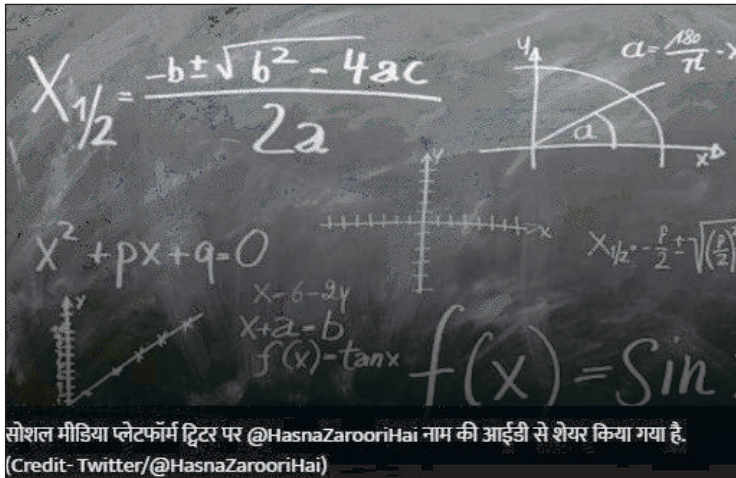 X₁/₂ = (-b ± √(b² - 4ac)) / 2a
y
a = 180/π · x
a
x
y
x
x² + px + q = 0
X₁/₂ = -p/2 ± √((p/2)²
y
x - 6 - 2y
x + a = b
f(x) = tanx
f(x) = Sin
सोशल मीडिया प्लेटफॉर्म ट्विटर पर @HasnaZarooriHai नाम की आईडी से शेयर किया गया है.
(Credit- Twitter/@HasnaZarooriHai)